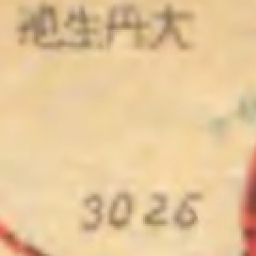 祂生丹大
3026